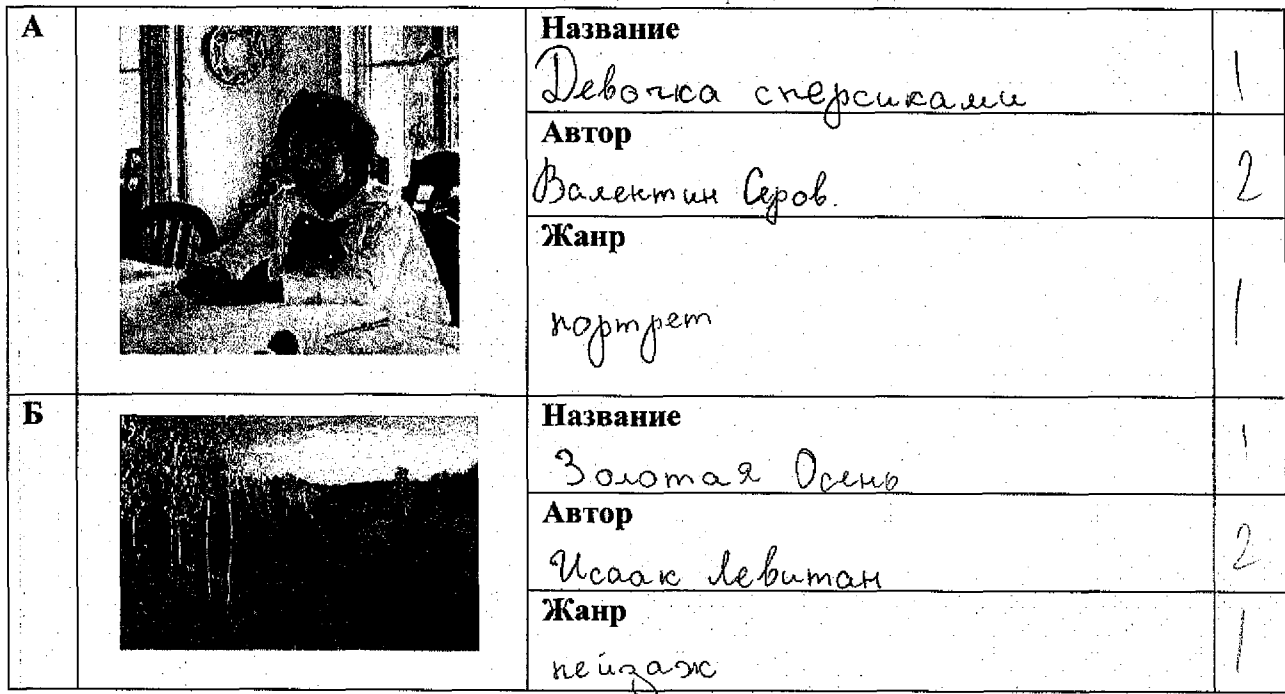 А
Название
Девочка сперсиками
1
Автор
Валентин Серов.
2
Жанр
портрет
1
Б
Название
Золотая Осень
1
Автор
Исаак Левитан
2
Жанр
пейзаж
1